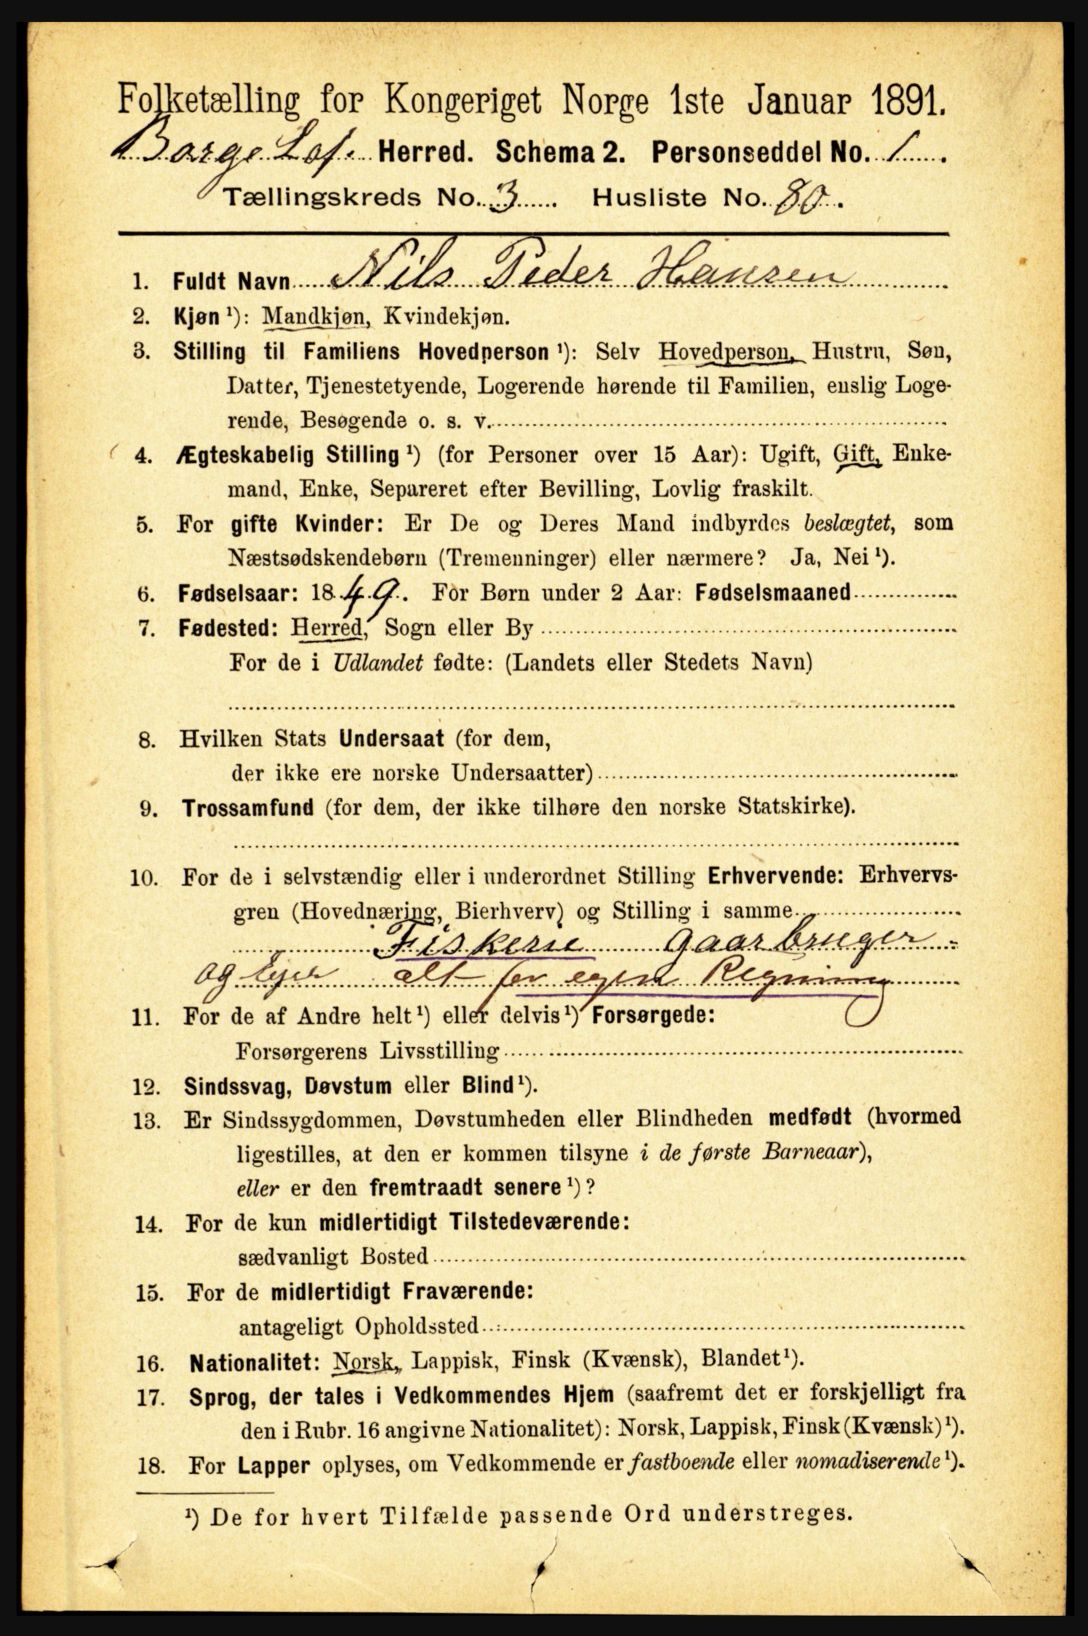 Folketælling for Kongeriget Norge 1ste Januar 1891.
Borge Lof. Herred. Schema 2. Personseddel No. 1.
Tællingskreds No. 3. Husliste No. 80.
1. Fuldt Navn Nils Peder Hansen
2. Kjøn ¹): Mandkjøn, Kvindekjøn.
3. Stilling til Familiens Hovedperson ¹): Selv Hovedperson, Hustru, Søn,
Datter, Tjenestetyende, Logerende hørende til Familien, enslig Loge-
rende, Besøgende o. s. v.
4. Ægteskabelig Stilling ¹) (for Personer over 15 Aar): Ugift, Gift, Enke-
mand, Enke, Separeret efter Bevilling, Lovlig fraskilt.
5. For gifte Kvinder: Er De og Deres Mand indbyrdes beslægtet, som
Næstsødskendebørn (Tremenninger) eller nærmere? Ja, Nei ¹).
6. Fødselsaar: 1849. For Børn under 2 Aar: Fødselsmaaned
7. Fødested: Herred, Sogn eller By
For de i Udlandet fødte: (Landets eller Stedets Navn)
8. Hvilken Stats Undersaat (for dem,
der ikke ere norske Undersaatter)
9. Trossamfund (for dem, der ikke tilhøre den norske Statskirke).
10. For de i selvstændig eller i underordnet Stilling Erhvervende: Erhvervs-
gren (Hovednæring, Bierhverv) og Stilling i samme
Fiskerie gaarbruger
og Eger alt for egen Regning
11. For de af Andre helt ¹) eller delvis ¹) Forsørgede:
Forsørgerens Livsstilling
12. Sindssvag, Døvstum eller Blind ¹).
13. Er Sindssygdommen, Døvstumheden eller Blindheden medfødt (hvormed
ligestilles, at den er kommen tilsyne i de første Barneaar),
eller er den fremtraadt senere ¹)?
14. For de kun midlertidigt Tilstedeværende:
sædvanligt Bosted
15. For de midlertidigt Fraværende:
antageligt Opholdssted
16. Nationalitet: Norsk, Lappisk, Finsk (Kvænsk), Blandet ¹).
17. Sprog, der tales i Vedkommendes Hjem (saafremt det er forskjelligt fra
den i Rubr. 16 angivne Nationalitet): Norsk, Lappisk, Finsk (Kvænsk) ¹).
18. For Lapper oplyses, om Vedkommende er fastboende eller nomadiserende ¹).
¹) De for hvert Tilfælde passende Ord understreges.